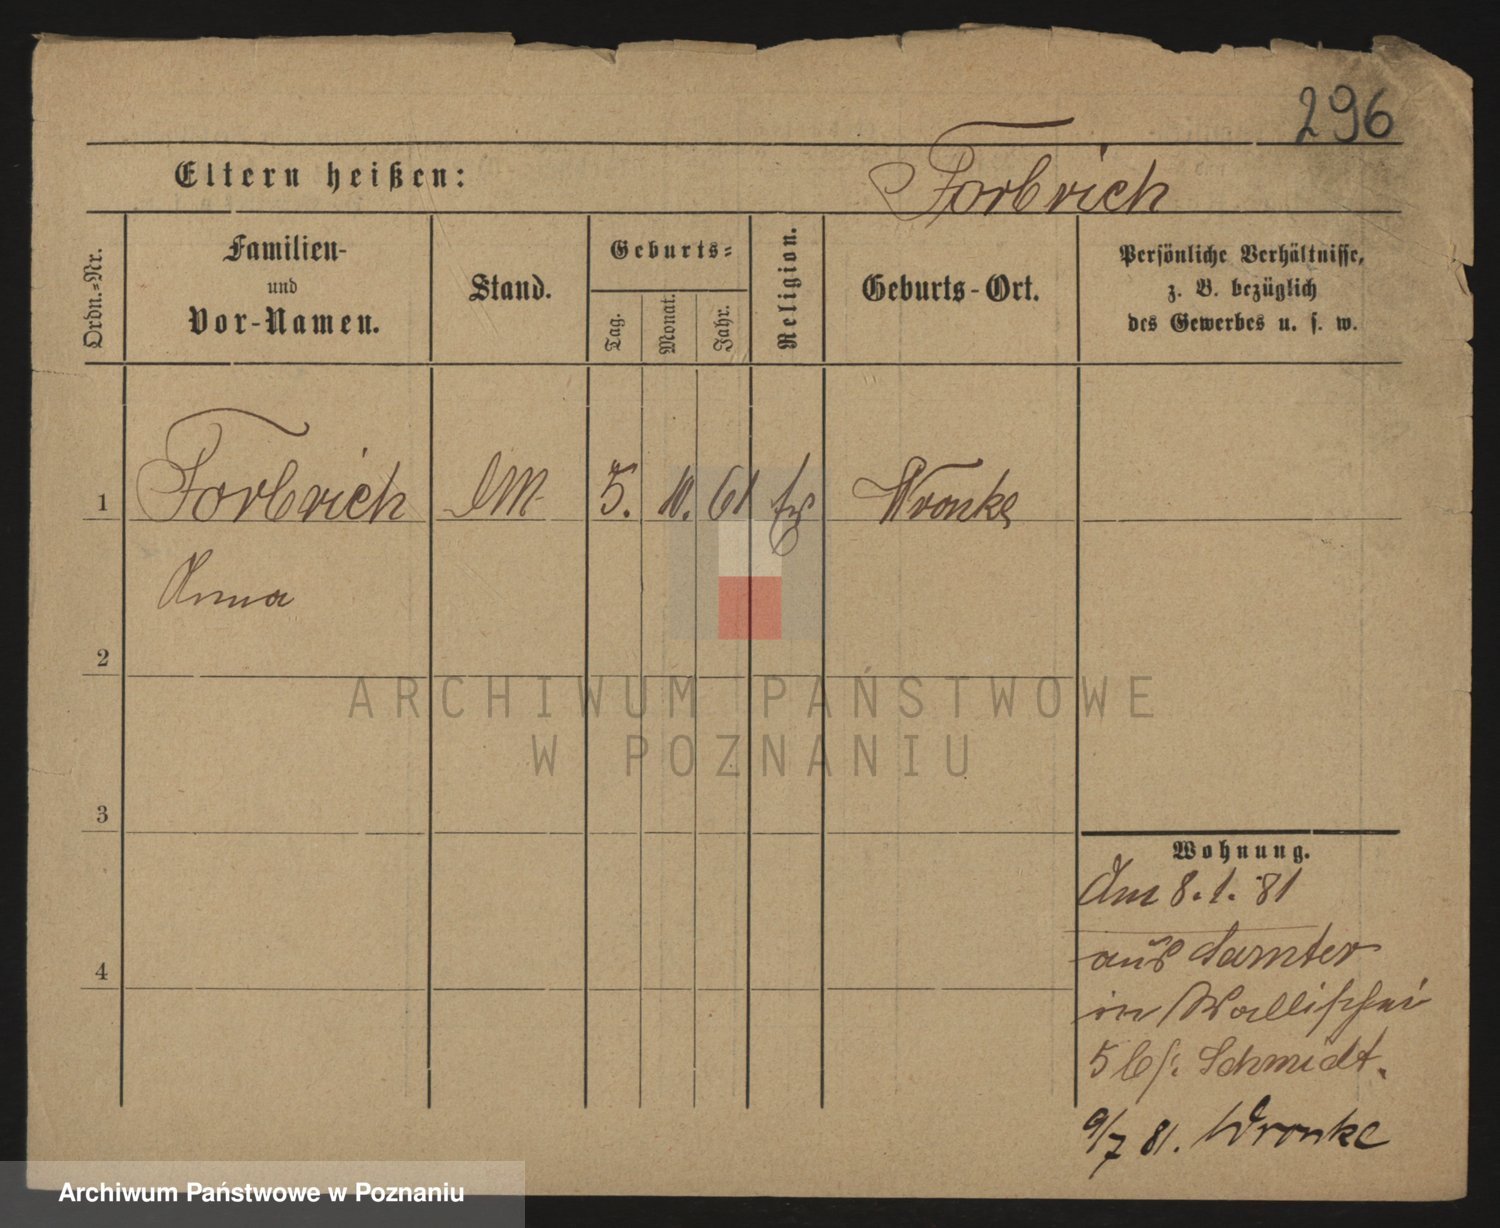 296
Eltern heißen: Forbrich
Ordn.-Nr.
Familien-
und
Vor-Namen.
Stand.
Geburts-
Tag.
Monat.
Jahr.
Religion.
Geburts-Ort.
Persönliche Verhältnisse,
z. B. bezüglich
des Gewerbes u. s. w.
1 Forbrich 5. 10. 61 Wronke
Anna
2
ARCHIWUM PAŃSTWOWE
W POZNANIU
3
Wohnung.
Am 8.1.81
aus Samter
in Wallischei
4
5 bei Schmidt.
9/7 81. Wronke
Archiwum Państwowe w Poznaniu